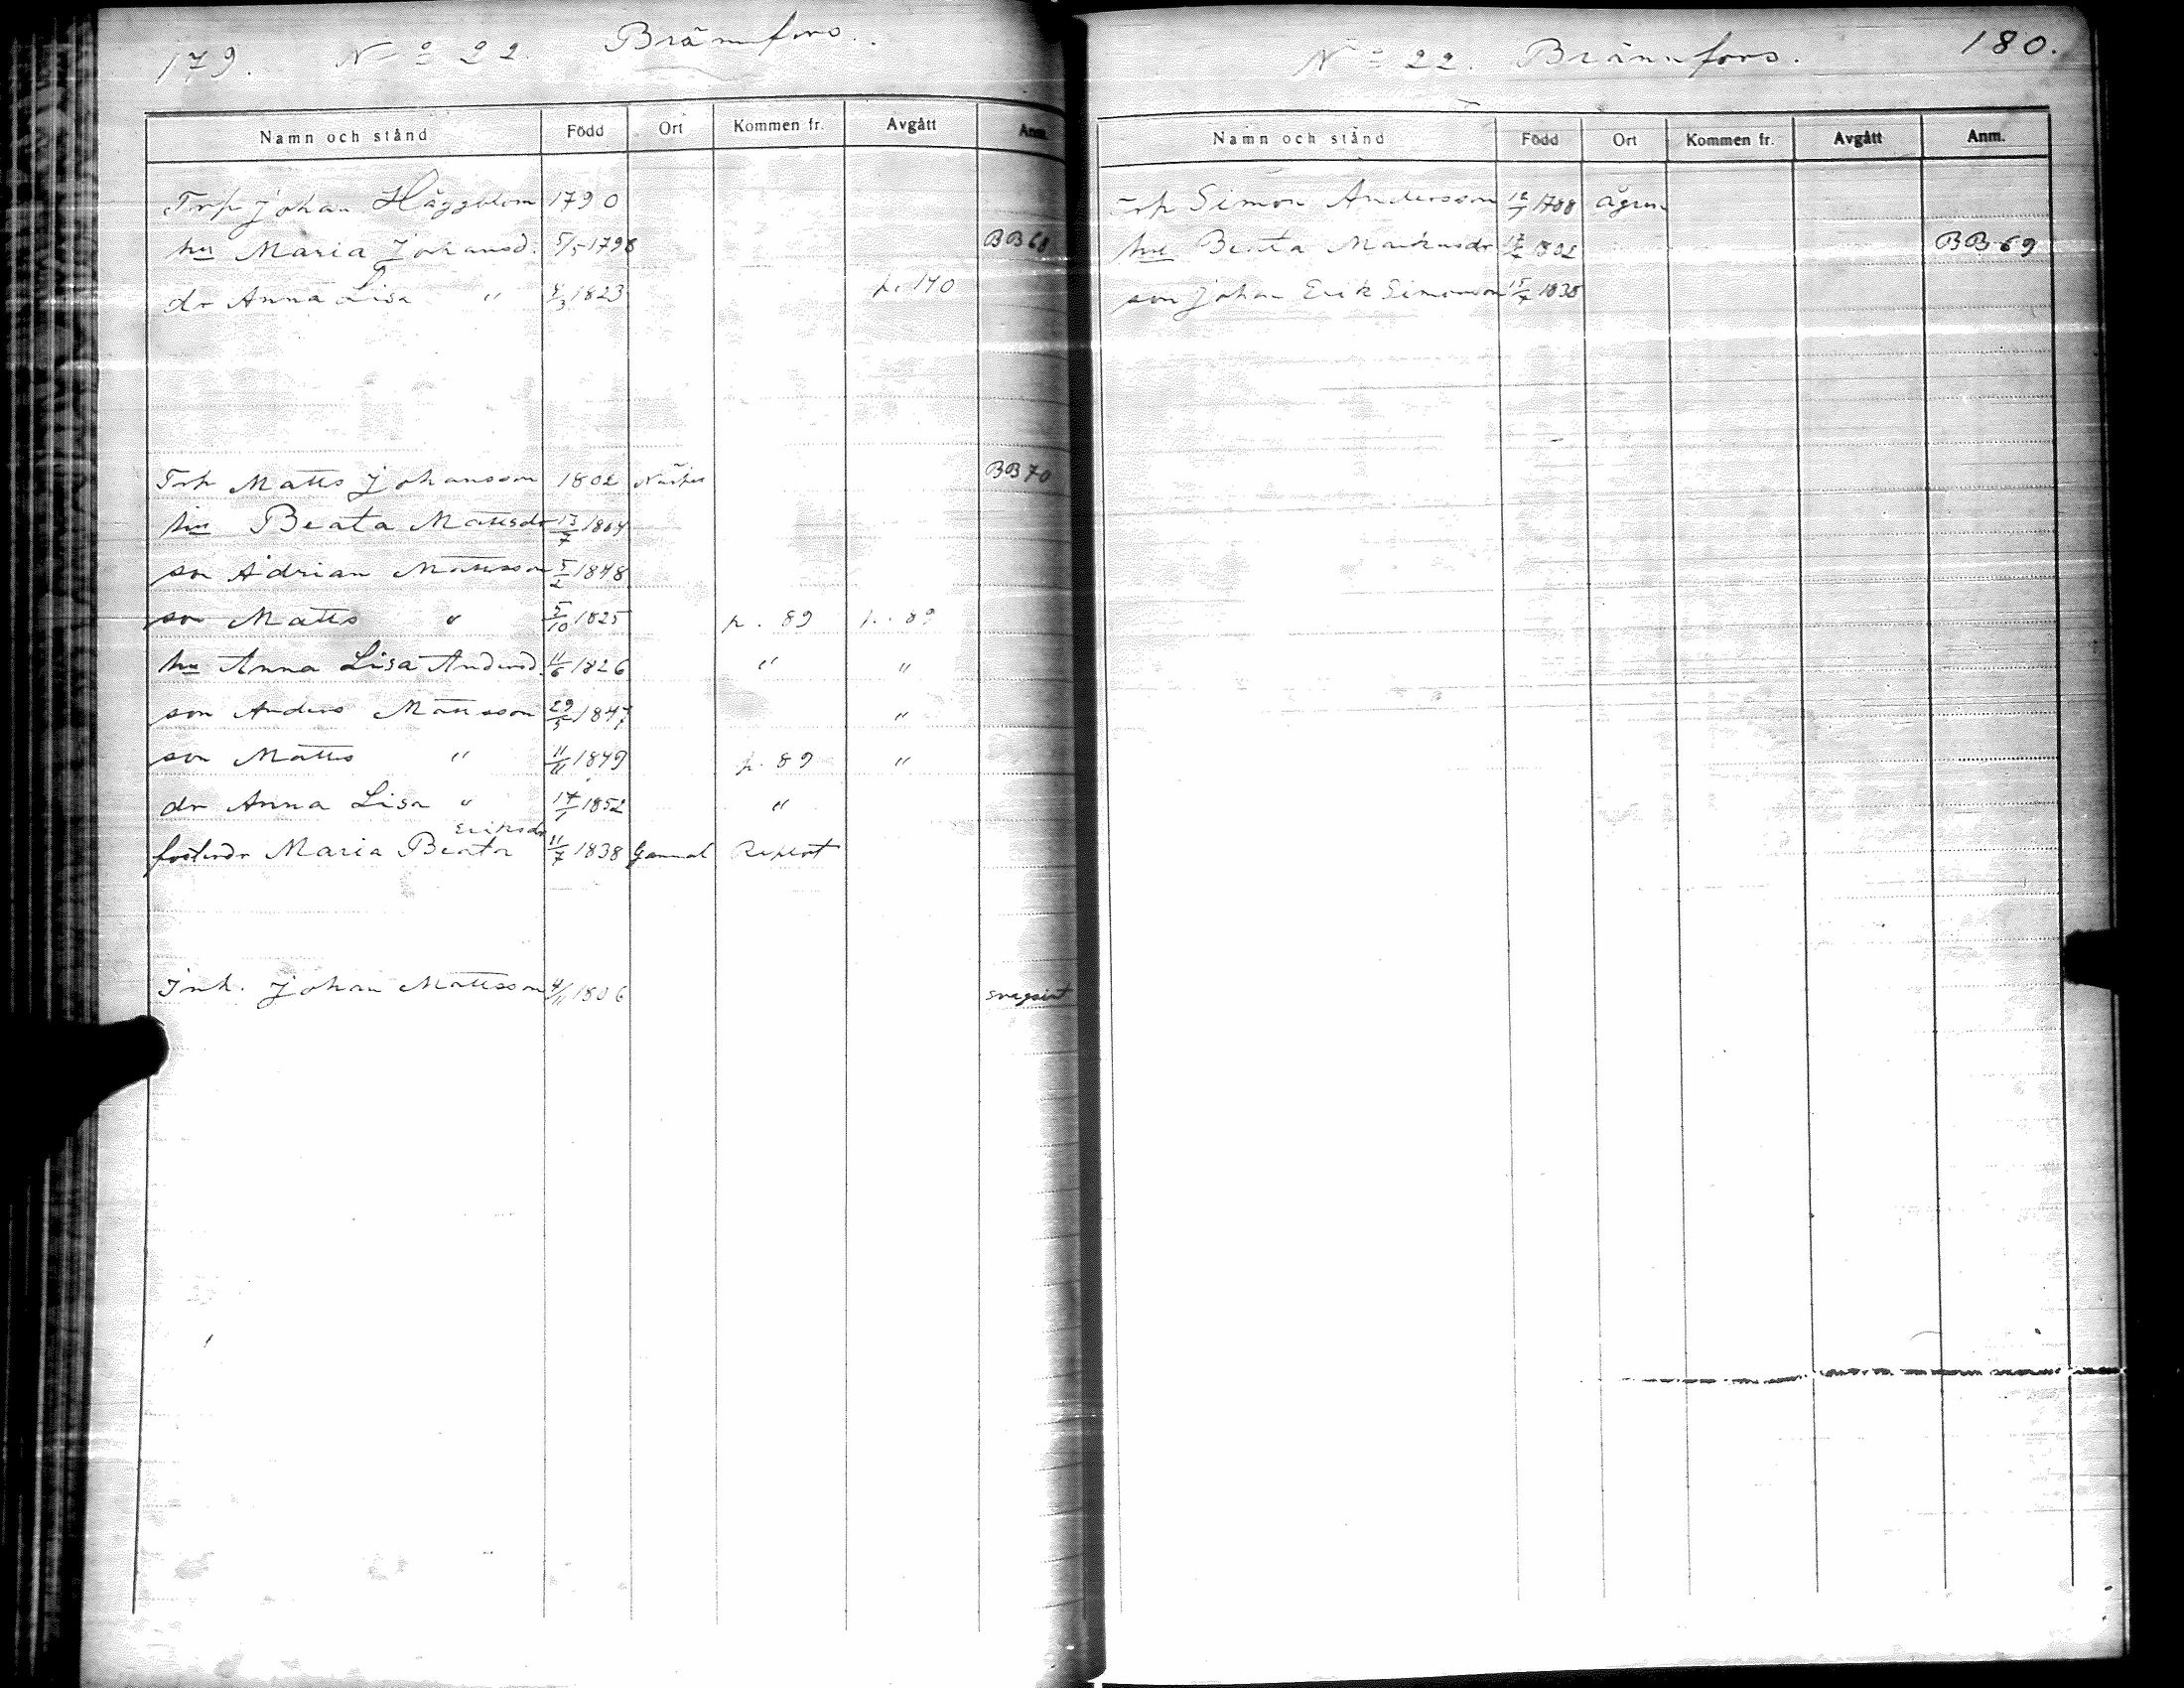 179. No 22. Brännfors.
Namn och stånd Född Ort Kommen fr. Avgått Anm.
Trp Johan Häggblom 1790
hu Maria Johansd. 5/5 1798 BB 68
dr Anna Lisa " 4/3 1823 p. 170
Trp Matts Johansson 1802 BB 70
hu Beata Mattsdr 13/7 1804
son Adrian Mattsson 5/2 1848
son Matts " 5/10 1825 p. 89 p. 89
hu Anna Lisa Andersd. 11/6 1826 " "
son Anders Mattsson 29/5 1847 "
son Matts " 11/11 1849 p. 89 "
dr Anna Lisa " 17/1 1852 "
Eriksdr
fosterdr Maria Beata 11/7 1838 Gammal Replot
Inh. Johan Mattsson 4/11 1806
No 22. Brännfors. 180.
Namn och stånd Född Ort Kommen fr. Avgått Anm.
Trp Simon Andersson 1788
hu Beata Markusdr 1802 BB 69
son Johan Erik Simonsson 15/7 1838